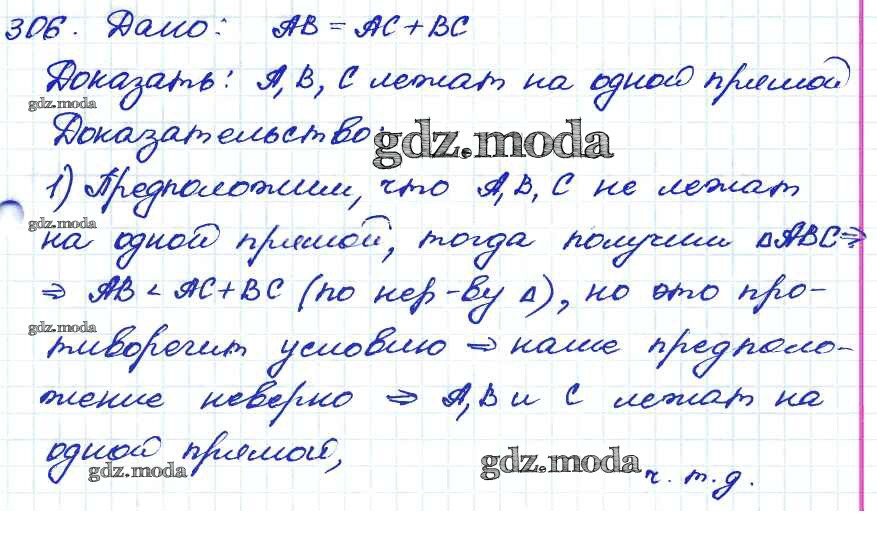 306. Дано: AB = AC + BC
Доказать: A, B, C лежат на одной прямой
gdz.moda
Доказательство:
gdz.moda
1) Предположим, что A, B, C не лежат
gdz.moda
на одной прямой, тогда получим △ABC ⇒
⇒ AB < AC + BC (по нер-ву △), но это про-
gdz.moda
тиворечит условию ⇒ наше предполо-
жение неверно ⇒ A, B и C лежат на
одной прямой,
gdz.moda
gdz.moda
ч. т. д.